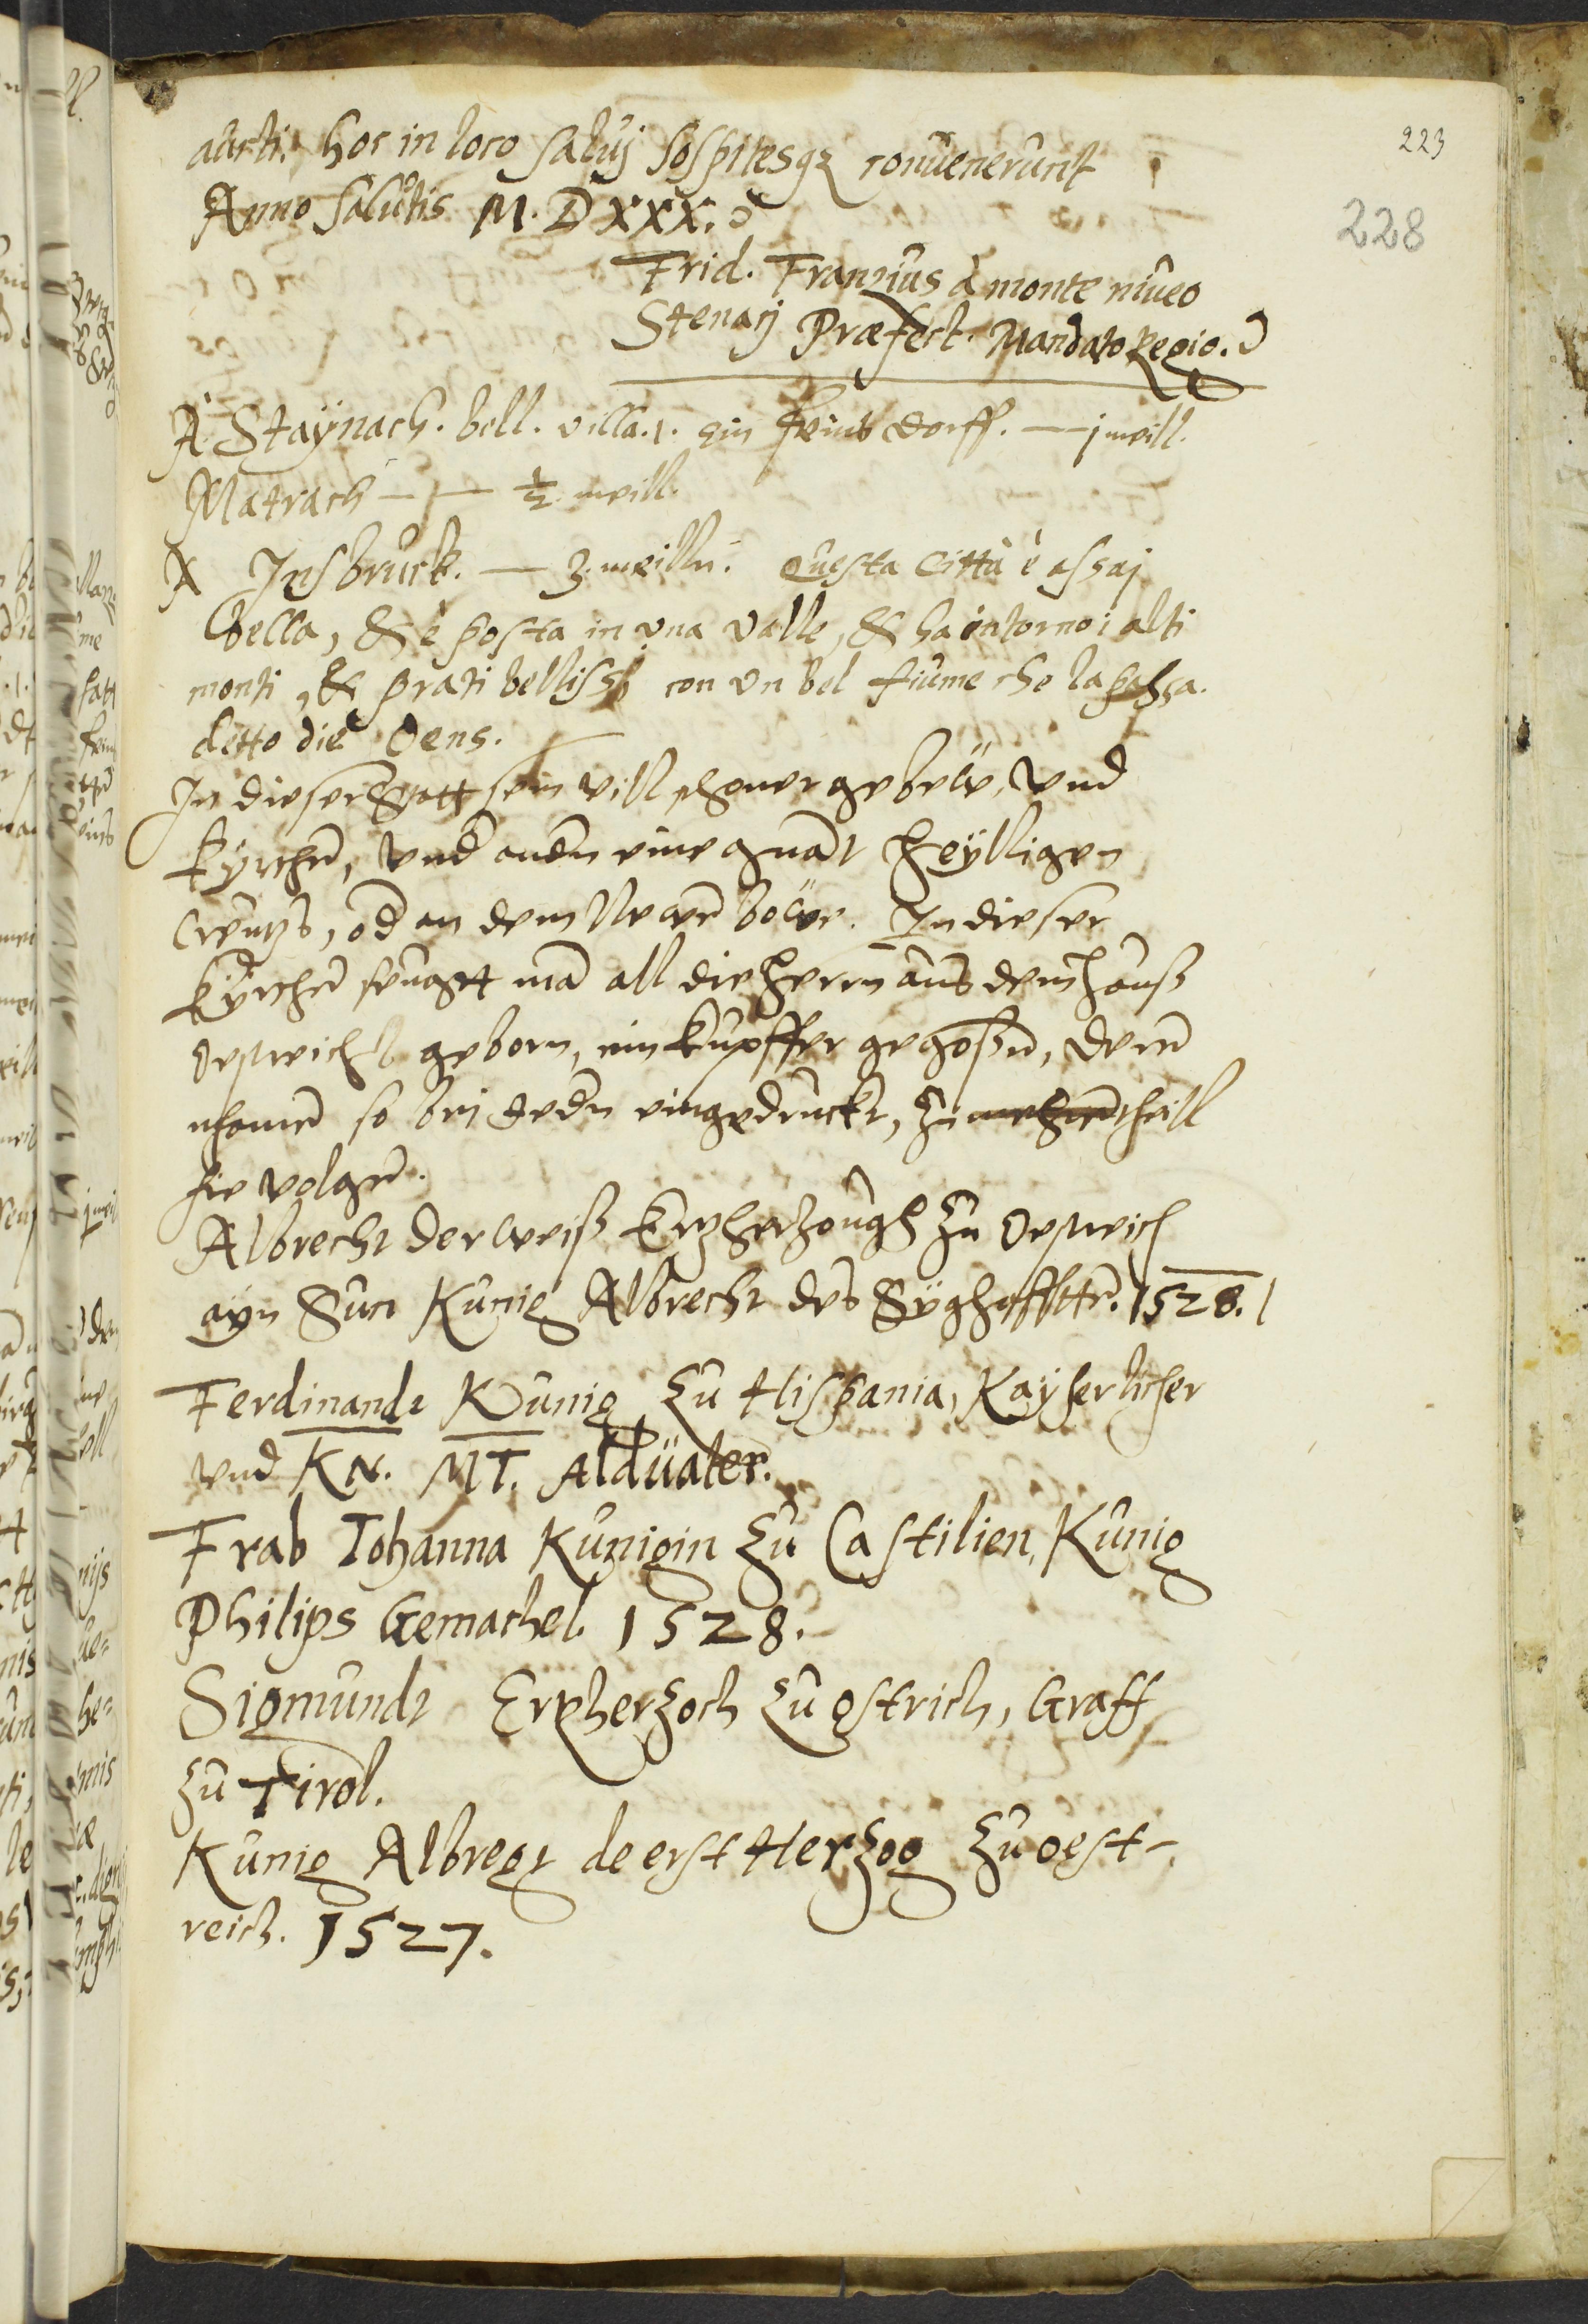 223
228
aucti. hoc in loco saluj sospitesqz conuenerunt
Anno Salutis M. D XXX.
Frid. Franzius à monte niueo
Stenarj Præfect. Mandato Regio.
A Staÿnach. bell. villa. 1. ein feins dorff. — j meill.
Matrach — — ½ meill.
A Insbruck. — 3. meilln. Questa Città è assaj
bella, & è posta in vna valle, & ha intorno i alti
monti, & prati belliss. con vn bel fiume che la passa.
detto die Oens.
In dieser Statt sein vill schoner gebew, vnd
kÿrchen, vnd auch eine gnāt heÿlligen
Creutzs, od an dem Newen bowe. In dieser
kÿrchen man all die herrn aus dem hauss
Oestreich geborn, ein kupffer gegossen, deren
nhamen so bei eingedruckt, zu theill
hie volgen.
Albrecht der weiss Ertzhertzough zu Oestreich
aÿn Sun Kunig Albrecht des 1528.
Ferdinandt Kunig zu Hispania, Kaÿserlicher
vnd KN. MT. Alduater.
Frab Johanna Kunigin zu Castilien, Kunig
Philips Gemachel. 1528.
Sigmundt Erzherzoch zu ostrich, Graff
zu Tirol.
Kunig Albregt de erst Herzog zu oest-
reich. 1527.